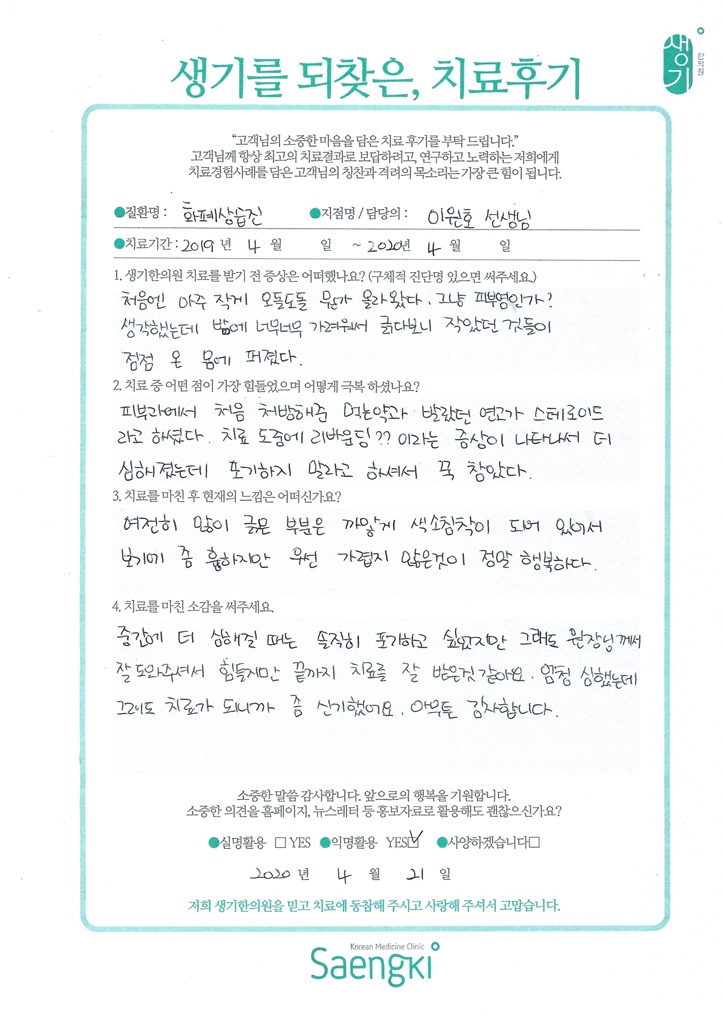 생기 한의원
생기를 되찾은, 치료후기
“고객님의 소중한 마음을 담은 치료 후기를 부탁 드립니다.”
고객님께 항상 최고의 치료결과로 보답하려고, 연구하고 노력하는 저희에게
치료경험사례를 담은 고객님의 칭찬과 격려의 목소리는 가장 큰 힘이 됩니다.
●질환명 : 화폐상습진 ●지점명 / 담당의 : 이원호 선생님
●치료기간 : 2019 년 4 월 일 ~ 2020년 4 월 일
1. 생기한의원 치료를 받기 전 증상은 어떠했나요? (구체적 진단명 있으면 써주세요.)
처음엔 아주 작게 오돌도돌 뭔가 올라왔다. 그냥 피부염인가?
생각했는데 밤에 너무너무 가려워서 긁다보니 작았던 것들이
점점 온 몸에 퍼졌다.
2. 치료 중 어떤 점이 가장 힘들었으며 어떻게 극복 하셨나요?
피부과에서 처음 처방해준 먹는약과 발랐던 연고가 스테로이드
라고 하셨다. 치료 도중에 리바운딩?? 이라는 증상이 나타나서 더
심해졌는데 포기하지 말라고 하셔서 꾹 참았다.
3. 치료를 마친 후 현재의 느낌은 어떠신가요?
여전히 많이 긁은 부분은 까맣게 색소침착이 되어 있어서
보기에 좀 흉하지만 우선 가렵지 않은것이 정말 행복하다.
4. 치료를 마친 소감을 써주세요.
중간에 더 심해질 때는 솔직히 포기하고 싶었지만 그래도 원장님께서
잘 도와주셔서 힘들지만 끝까지 치료를 잘 받은것 같아요. 엄청 심했는데
그래도 치료가 되니까 좀 신기했어요. 아무튼 감사합니다.
소중한 말씀 감사합니다. 앞으로의 행복을 기원합니다.
소중한 의견을 홈페이지, 뉴스레터 등 홍보자료로 활용해도 괜찮으신가요?
●실명활용 □ YES ●익명활용 YES☑ ●사양하겠습니다□
2020 년 4 월 21 일
저희 생기한의원을 믿고 치료에 동참해 주시고 사랑해 주셔서 고맙습니다.
Korean Medicine Clinic
Saengki